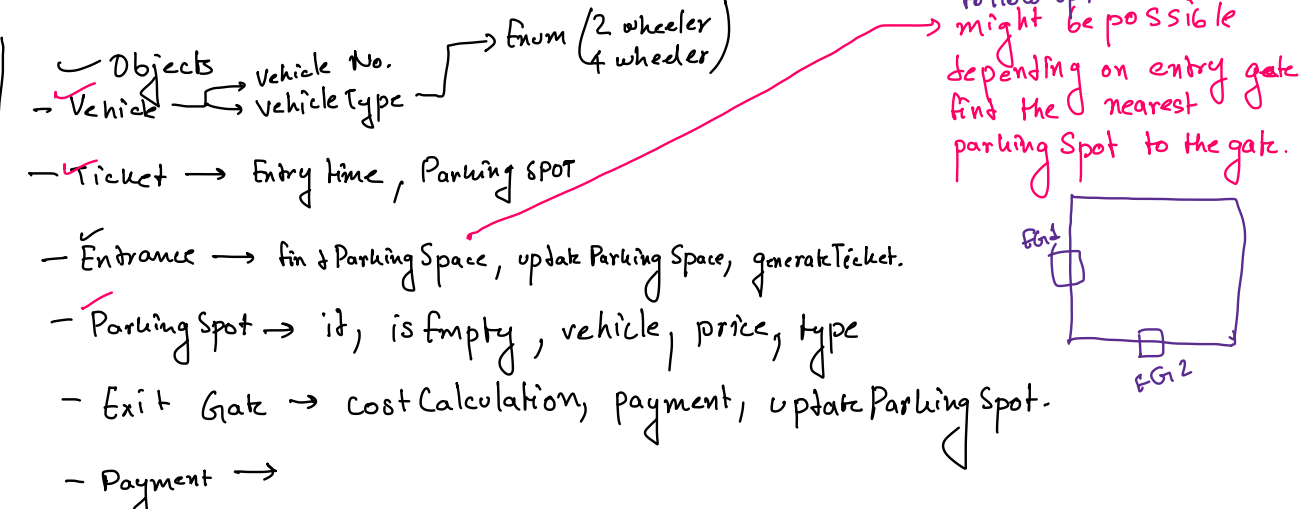 Objects
Vehicle → Vehicle No.
→ vehicleType → Enum (2 wheeler
4 wheeler)
- Ticket → Entry time, Parking SPOT
- Entrance → find ParkingSpace, update Parking Space, generateTicket.
- ParkingSpot → id, isEmpty, vehicle, price, type
- Exit Gate → costCalculation, payment, update ParkingSpot.
- Payment →
might be possible
depending on entry gate
find the nearest
parking Spot to the gate.
EG1
EG2